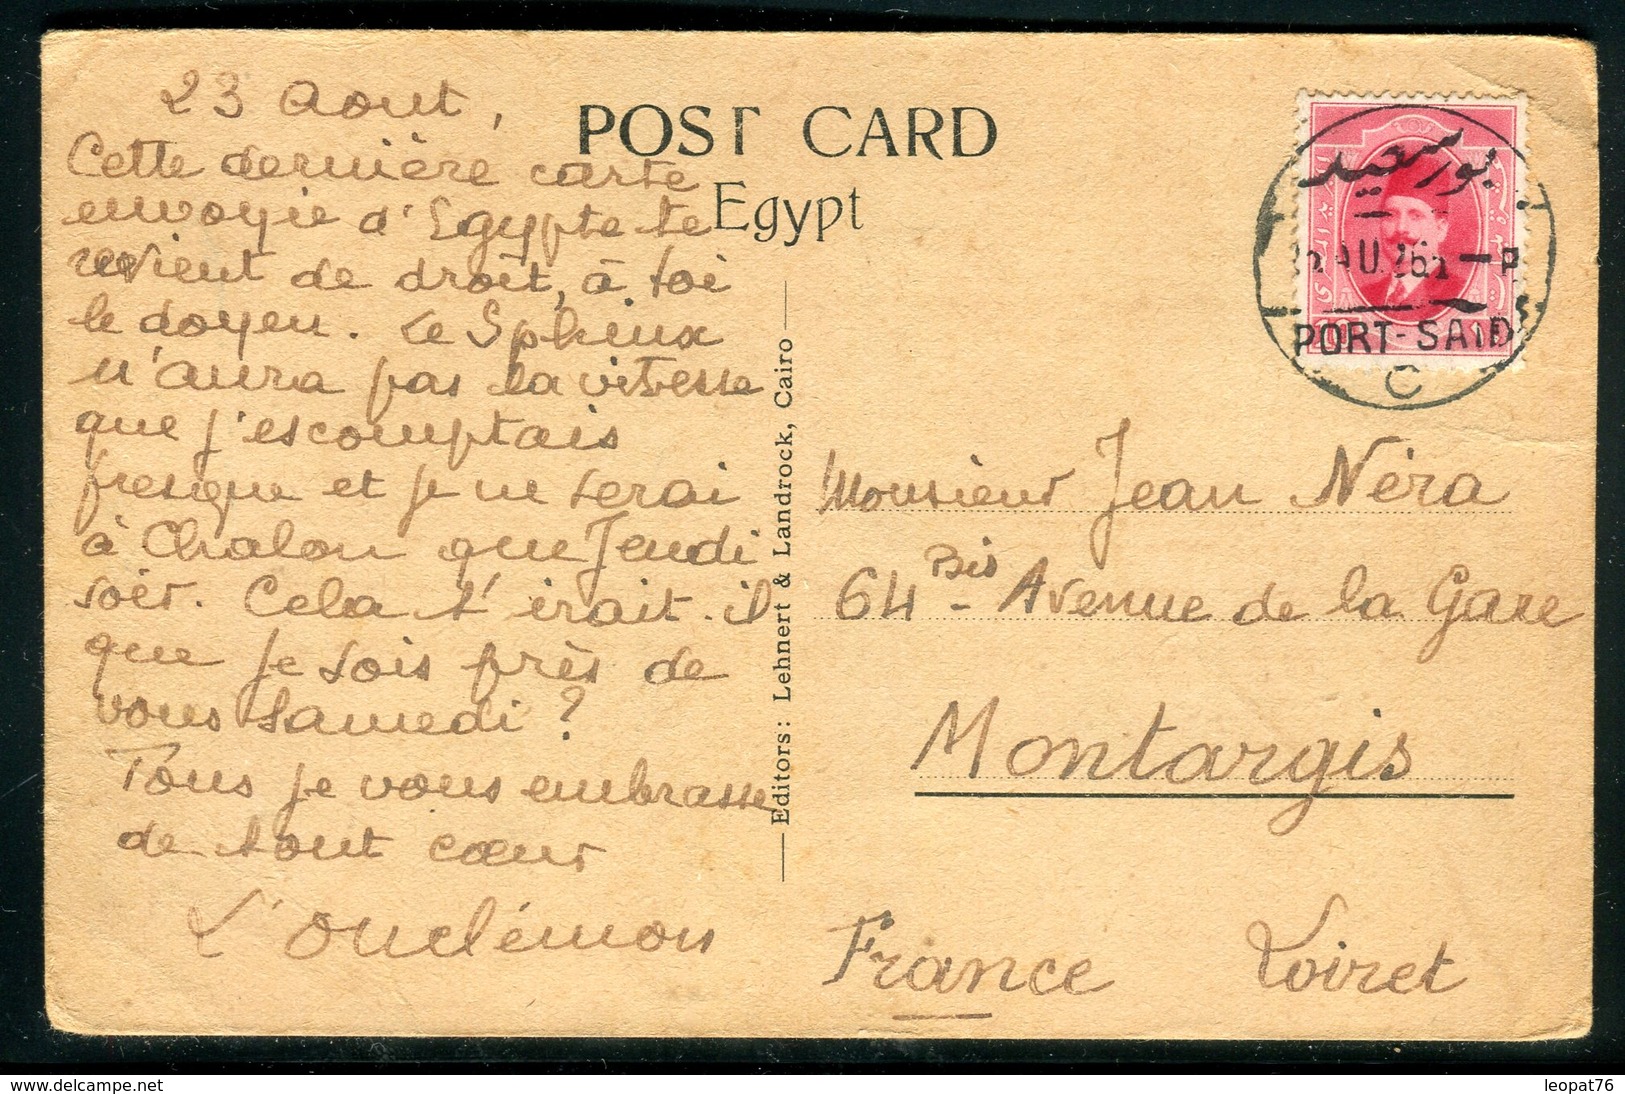 23 Aout,
Cette dernière carte
envoyée d'Egypte te
revient de droit, à toi
le doyen. Le Sphinx
n'aura pas la vitesse
que j'escomptais
presque et je ne serai
à Chalon que Jeudi
soir. Cela t'irait-il
que je sois près de
vous Samedi?
Tous je vous embrasse
de tout cœur
L'Onclémon
POST CARD
Egypt
Editors: Lehnert & Landrock, Cairo
بور سعيد
AU.26
PORT-SAID
C
Monsieur Jean Néra
64 Bis - Avenue de la Gare
Montargis
France Loiret
leopat76